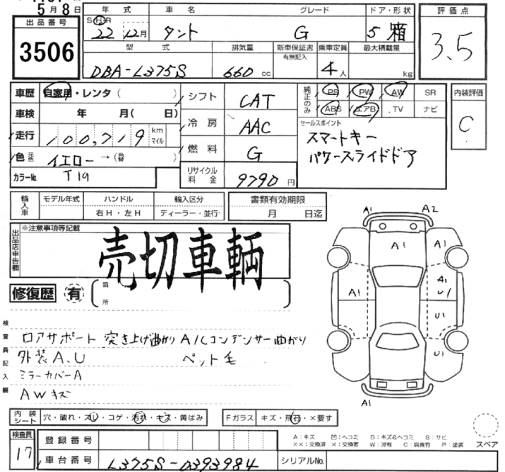 5月8日
出品番号
3506
年式 車名 グレード ドア・形状 評価点
22年12月 タント G 5 箱 3.5
型式 排気量 新車保証書 乗車定員 最大積載量
有無記入
DBA-L375S 660cc 4人 kg
車歴 自家用・レンタ シフト CAT 純正のみ PS PW AW SR 内装評価
ABS エアB TV ナビ C
車検 年 月(日)
走行 100,719 km マイル 冷房 AAC セールスポイント
スマートキー
パワースライドドア
色 イエロー→ 燃料 G
カラー№ T19 リサイクル料金 9790円
輸入車 モデル年式 ハンドル 輸入区分 書類有効期限
右H・左H ディーラー・並行 月 日迄
出品店申告欄 ※注意事項等記載
売切車輌
修復歴 有 箇所
A1 A2
A1 A1
A1
A1 U1
U1
A1 A1
検査員記入欄
ロアサポート 突き上げ曲がり A/Cコンデンサー曲がり
外装A.U ペット毛
ミラーカバーA
AWキズ
内装シート 穴・破れ・スレ・コゲ・汚れ・キズ・黄ばみ Fガラス キズ・飛石・×要す
A:キズ 凹:ヘコミ B:キズ&ヘコミ S:サビ
××:交換済 ×:交換要 W:補修 C:腐食有 P:塗装
スペア
検査員 17 登録番号
車台番号 L375S-0393984 シリアル№